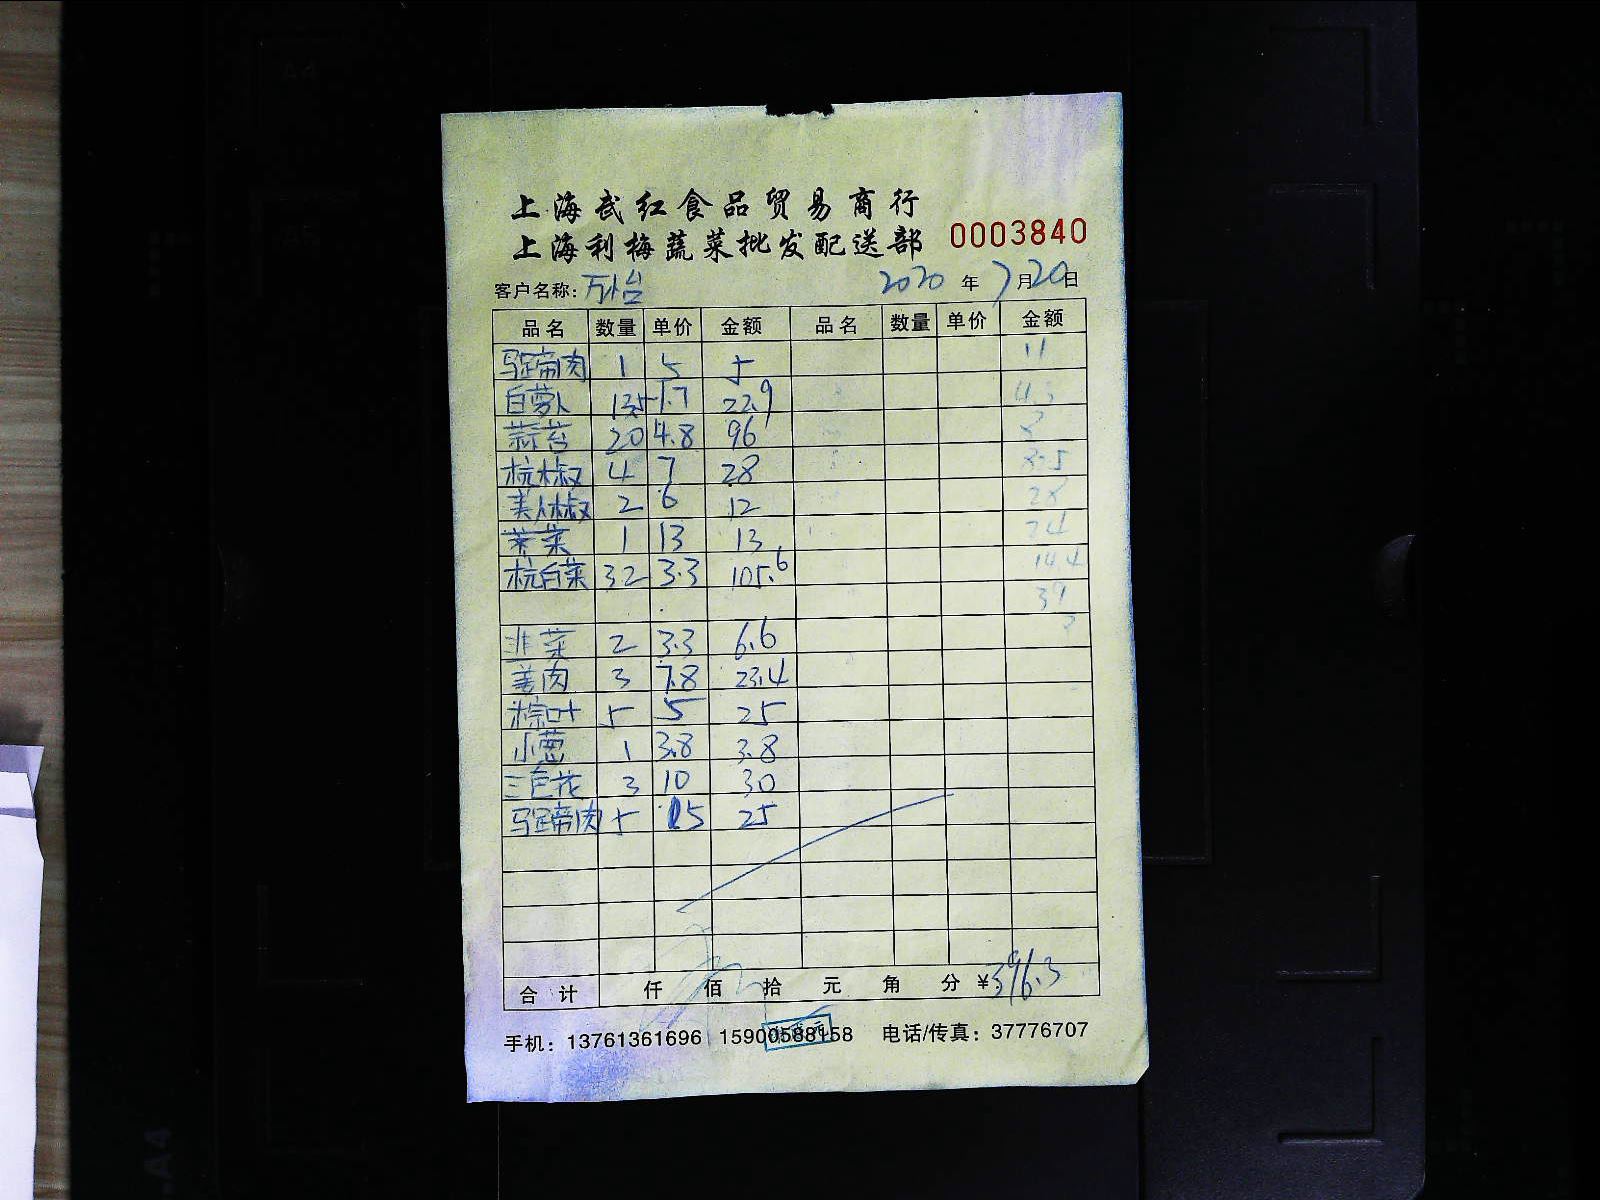 上海武红食品贸易商行
上海利梅蔬菜批发配送部 0003840
客户名称: 万怡 2020 年 7 月 20 日
品名 数量 单价 金额 品名 数量 单价 金额
马蹄肉 1 5 5 11
白萝卜 13.5 1.7 22.9
蒜苔 20 4.8 96
杭椒 4 7 28
美人椒 2 6 12
荠菜 1 13 13
杭白菜 32 3.3 105.6 14.4
39
韭菜 2 3.3 6.6
姜肉 3 7.8 23.4
粽叶 5 5 25
小葱 1 3.8 3.8
三色花 3 10 30
马蹄肉 5 5 25
合计 仟 佰 拾 元 角 分 ¥396.3
手机: 13761361696 15900588158 电话/传真: 37776707